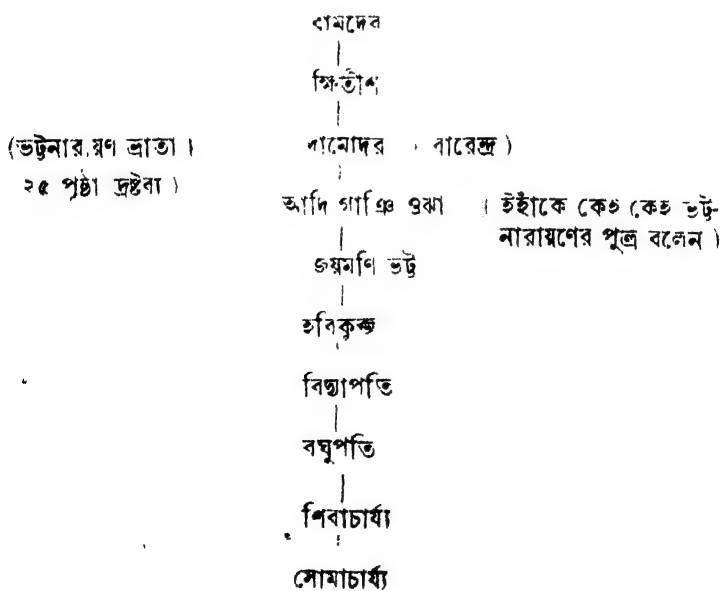 রামদেব
ক্ষিতীশ
(ভট্টনারায়ণ ভ্রাতা।
২৫ পৃষ্ঠা দ্রষ্টব্য)
দামোদর (বারেন্দ্র)
আদি গাঞি ওঝা
(ইহাঁকে কেহ কেহ ভট্ট-
নারায়ণের পুত্র বলেন)
জয়মণি ভট্ট
হরিকুব্জ
বিদ্যাপতি
রঘুপতি
শিবাচার্য্য
সোমাচার্য্য